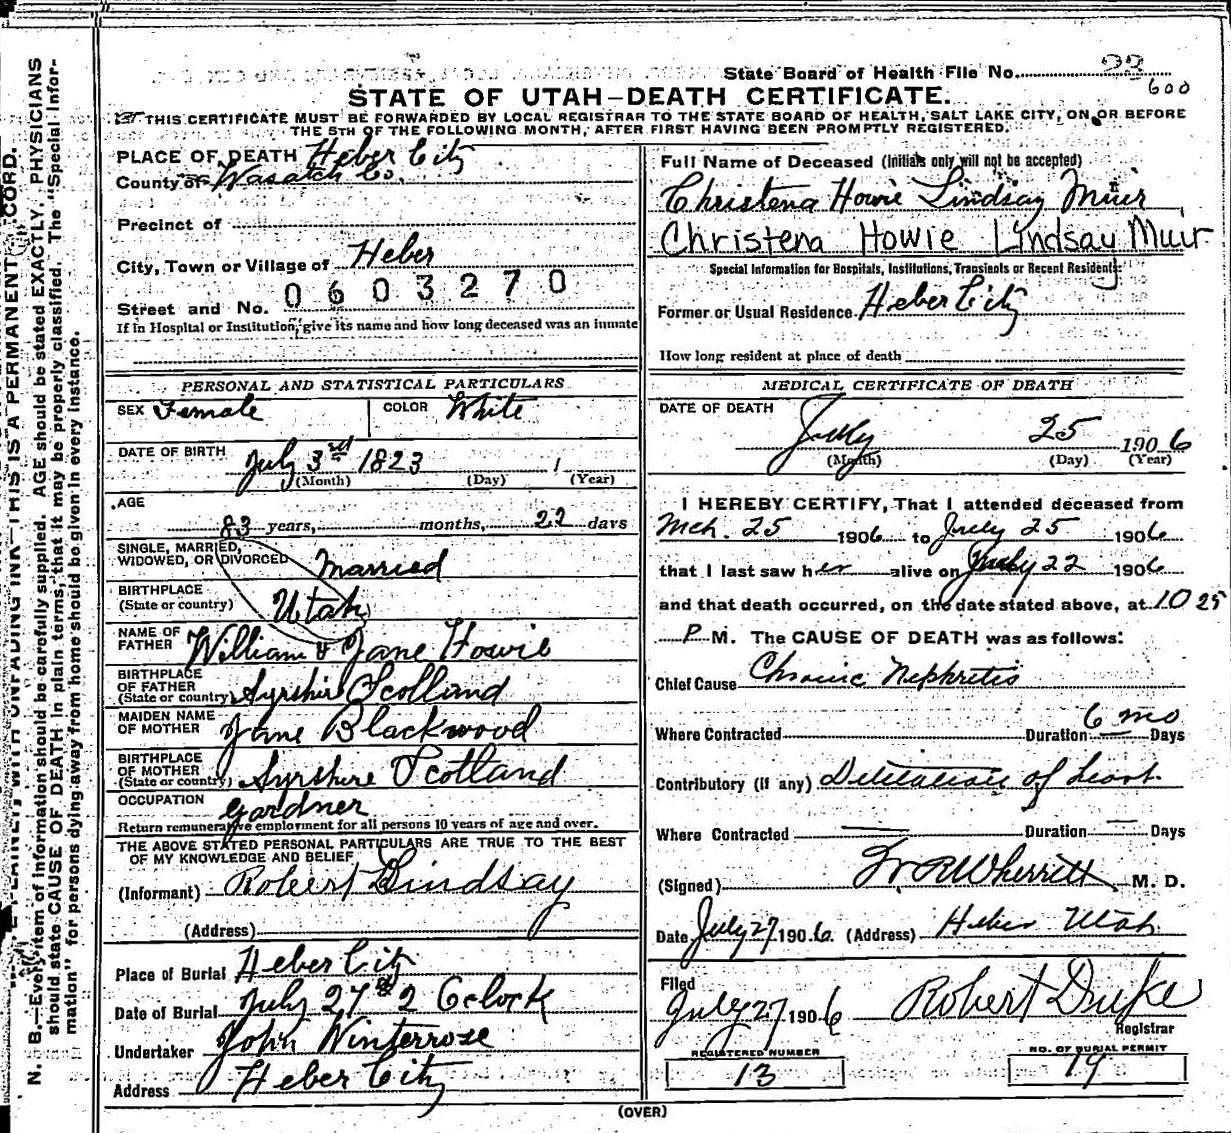 State Board of Health File No. 23
600
STATE OF UTAH—DEATH CERTIFICATE.
THIS CERTIFICATE MUST BE FORWARDED BY LOCAL REGISTRAR TO THE STATE BOARD OF HEALTH, SALT LAKE CITY, ON OR BEFORE
THE 5TH OF THE FOLLOWING MONTH, AFTER FIRST HAVING BEEN PROMPTLY REGISTERED.
PLACE OF DEATH Heber City
County of Wasatch Co.
Precinct of
City, Town or Village of Heber
Street and No. 0603270
If in Hospital or Institution, give its name and how long deceased was an inmate
PERSONAL AND STATISTICAL PARTICULARS
SEX Female COLOR White
DATE OF BIRTH July 3rd 1823 1
(Month) (Day) (Year)
AGE
83 years, months, 22 days
SINGLE, MARRIED,
WIDOWED, OR DIVORCED Married
BIRTHPLACE
(State or country) Utah
NAME OF
FATHER William & Jane Howie
BIRTHPLACE
OF FATHER
(State or country) Ayrshire Scotland
MAIDEN NAME
OF MOTHER Jane Blackwood
BIRTHPLACE
OF MOTHER
(State or country) Ayrshire Scotland
OCCUPATION Gardner
Return remunerative employment for all persons 10 years of age and over.
THE ABOVE STATED PERSONAL PARTICULARS ARE TRUE TO THE BEST
OF MY KNOWLEDGE AND BELIEF
(Informant) Robert Lindsay
(Address)
Place of Burial Heber City
Date of Burial July 27th 2 Oclock
Undertaker John Winterrose
Address Heber City
Full Name of Deceased (Initials only will not be accepted)
Christena Howie Lindsay Muir
Christena Howie Lindsay Muir
Special Information for Hospitals, Institutions, Transients or Recent Residents
Former or Usual Residence Heber City
How long resident at place of death
MEDICAL CERTIFICATE OF DEATH
DATE OF DEATH
July 25 1906
(Month) (Day) (Year)
I HEREBY CERTIFY, That I attended deceased from
Mch. 25 1906 to July 25 1906
that I last saw her alive on July 22 1906
and that death occurred, on the date stated above, at 10 25
P M. The CAUSE OF DEATH was as follows:
Chief Cause Chronic Nephretis
6 mo
Where Contracted Duration Days
Contributory (if any) Dilitation of heart
Where Contracted Duration Days
(Signed) Wherritt M. D.
Date July 27 1906. (Address) Heber Utah
Filed
July 27 1906 Robert Duke
Registrar
REGISTERED NUMBER
13
NO. OF BURIAL PERMIT
14
(OVER)
WITH UNFADING INK—THIS IS A PERMANENT
N. B.—Every item of information should be carefully supplied. AGE should be stated EXACTLY. PHYSICIANS
should state CAUSE OF DEATH in plain terms, that it may be properly classified. The "Special Infor-
mation" for persons dying away from home should be given in every instance.